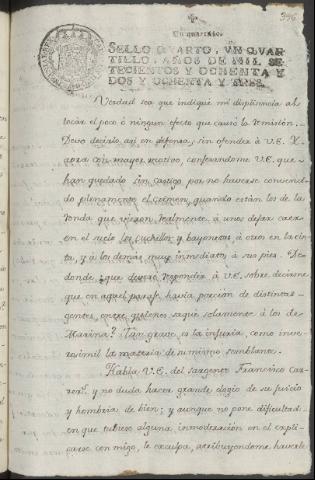 396
Un quartillo.
SELLO QVARTO, VN QVAR-
TILLO, AÑOS DE MIL SE-
TECIENTOS Y OCHENTA Y
DOS Y OCHENTA Y TRES.
Verdad sea que indiqué mi displicencia al
tocár el poco ó ningun efecto que causó la remision.
Devo decirlo así en defensa, sin ofender á V.E. Y
aora con mayor motivo, confesandome V.E. que
han quedado sin castigo por no haverse convenci-
do plenamente el crimen, quando están los de la
ronda que vieron realmente á unos dejar caer
en el suelo los cuchillos y bayonetas á otros en la cin-
ta, y á los demás muy inmediato á sus pies. De
donde, ¿que deveré responder á V.E. sobre decirme
que en aquel parage havia porcion de distintas
gentes, entre quienes saqué solamente á los de
Marina? Tan grave es la injuria, como inve-
risimil la materia de su mismo semblante.
Habla V.E. del sargento Francisco Car-
y no duda hacer grande elogio de su juicio
y hombria de bien; y aunque no pone dificultad
en que tubiese alguna inmoderacion en el expli-
carse con migo, le exculpa, atribuyendome haverle